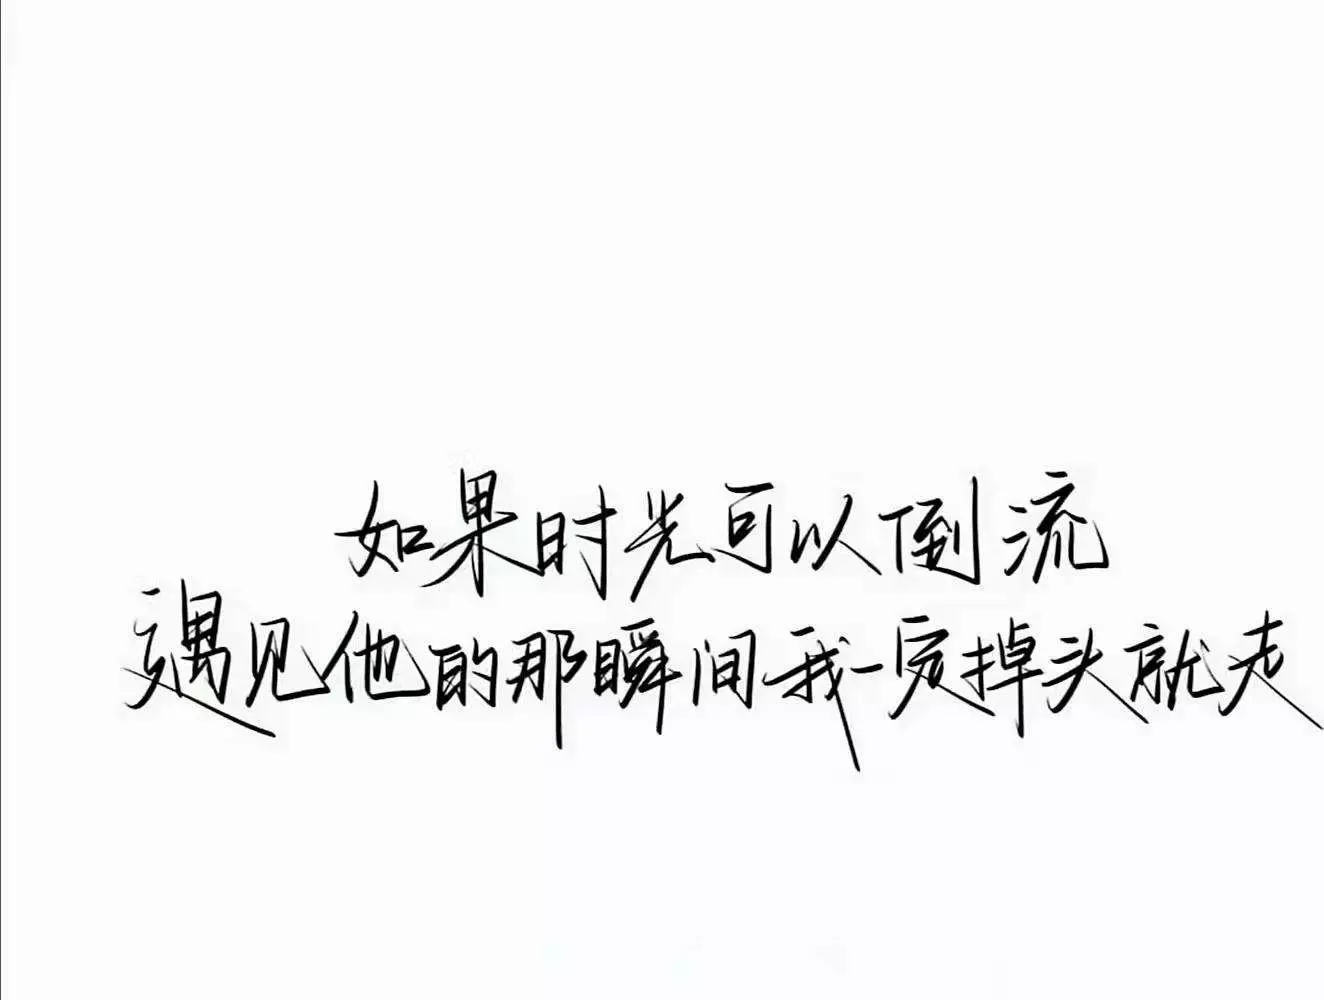 如果时光可以倒流
遇见他的那瞬间我一定掉头就走